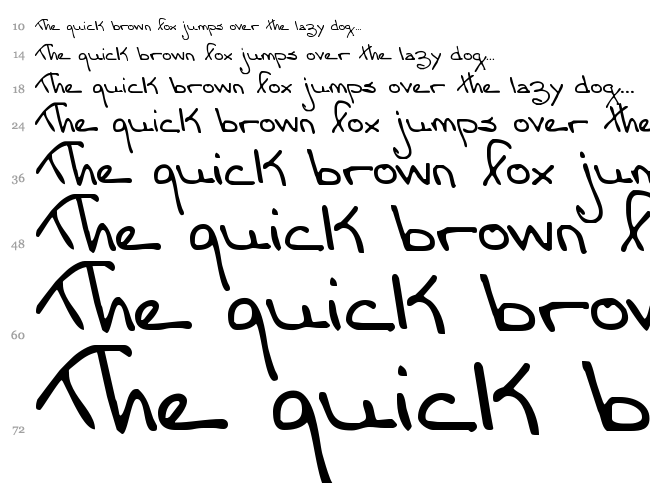 10 The quick brown fox jumps over the lazy dog...
14 The quick brown fox jumps over the lazy dog...
18 The quick brown fox jumps over the lazy dog...
24 The quick brown fox jumps over the
36 The quick brown fox jum
48 The quick brown f
60 The quick brow
72 The quick b